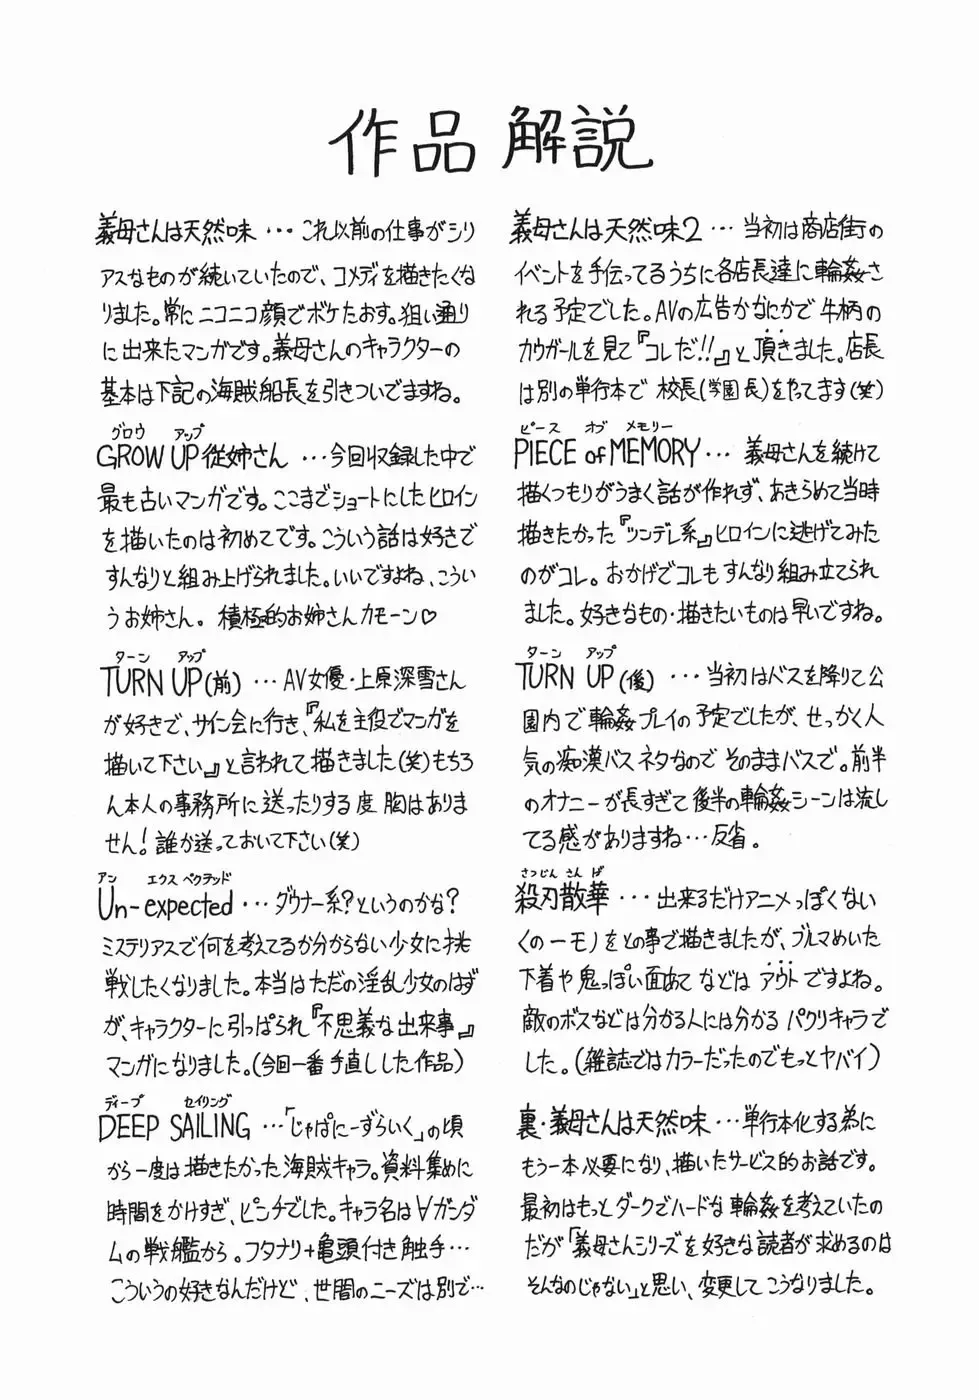 作品 解説
義母さんは天然味 ･･･ これ以前の仕事がシリ
アスなものが続いていたので、コメディを描きたくな
りました。常にニコニコ顔でボケたおす。狙い通り
に出来たマンガです。義母さんのキャラクターの
基本は下記の海賊船長を引きついでますね。
グロウ アップ
GROW UP 従姉さん ･･･今回収録した中で
最も古いマンガです。ここまでショートにしたヒロイン
を描いたのは初めてです。こういう話は好きで
すんなりと組み上げられました。いいですよね、こうい
うお姉さん。積極的お姉さんカモーン♡
ターン アップ
TURN UP(前) ･･･AV女優・上原深雪さん
が好きで、サイン会に行き、『私を主役でマンガを
描いて下さい』と言われて描きました(笑)もちろ
ん本人の事務所に送ったりする度胸はありま
せん!誰か送っておいて下さい(笑)
アン エクスペクテッド
Un-expected ･･･ダウナー系?というのかな?
ミステリアスで何を考えてるか分からない少女に挑
戦したくなりました。本当はただの淫乱少女のはず
が、キャラクターに引っぱられ『不思議な出来事』
マンガになりました。(今回一番手直しした作品)
ディープ セイリング
DEEP SAILING ･･･「じゃぱにーずらいく」の頃
から一度は描きたかった海賊キャラ。資料集めに
時間をかけすぎ、ピンチでした。キャラ名は∀ガンダ
ムの戦艦から。フタナリ+亀頭付き触手･･･
こういうの好きなんだけど、世間のニーズは別で･･･
義母さんは天然味2 ･･･ 当初は商店街の
イベントを手伝ってるうちに各店長達に輪姦さ
れる予定でした。AVの広告かなにかで牛柄の
カウガールを見て『コレだ!!』と頂きました。店長
は別の単行本で校長(学園長)をやってます(笑)
ピース オブ メモリー
PIECE of MEMORY ･･･ 義母さんを続けて
描くつもりがうまく話が作れず、あきらめて当時
描きたかった『ツンデレ系』ヒロインに逃げてみた
のがコレ。おかげでコレもすんなり組み立てられ
ました。好きなもの・描きたいものは早いですね。
ターン アップ
TURN UP(後) ･･･当初はバスを降りて公
園内で輪姦プレイの予定でしたが、せっかく人
気の痴漢バスネタなのでそのままバスで。前半
のオナニーが長すぎて後半の輪姦シーンは流し
てる感がありますね･･･反省。
さつじん さんげ
殺刃散華 ･･･出来るだけアニメっぽくない
くの一モノをとの事で描きましたが、ブルマめいた
下着や鬼っぽい面あてなどはアウトですよね。
敵のボスなどは分かる人には分かるパクリキャラで
した。(雑誌ではカラーだったのでもっとヤバイ)
裏・義母さんは天然味 ･･･単行本化する為に
もう一本必要になり、描いたサービス的お話です。
最初はもっとダークでハードな輪姦を考えていたの
だが「義母さんシリーズを好きな読者が求めるのは
そんなのじゃない」と思い、変更してこうなりました。